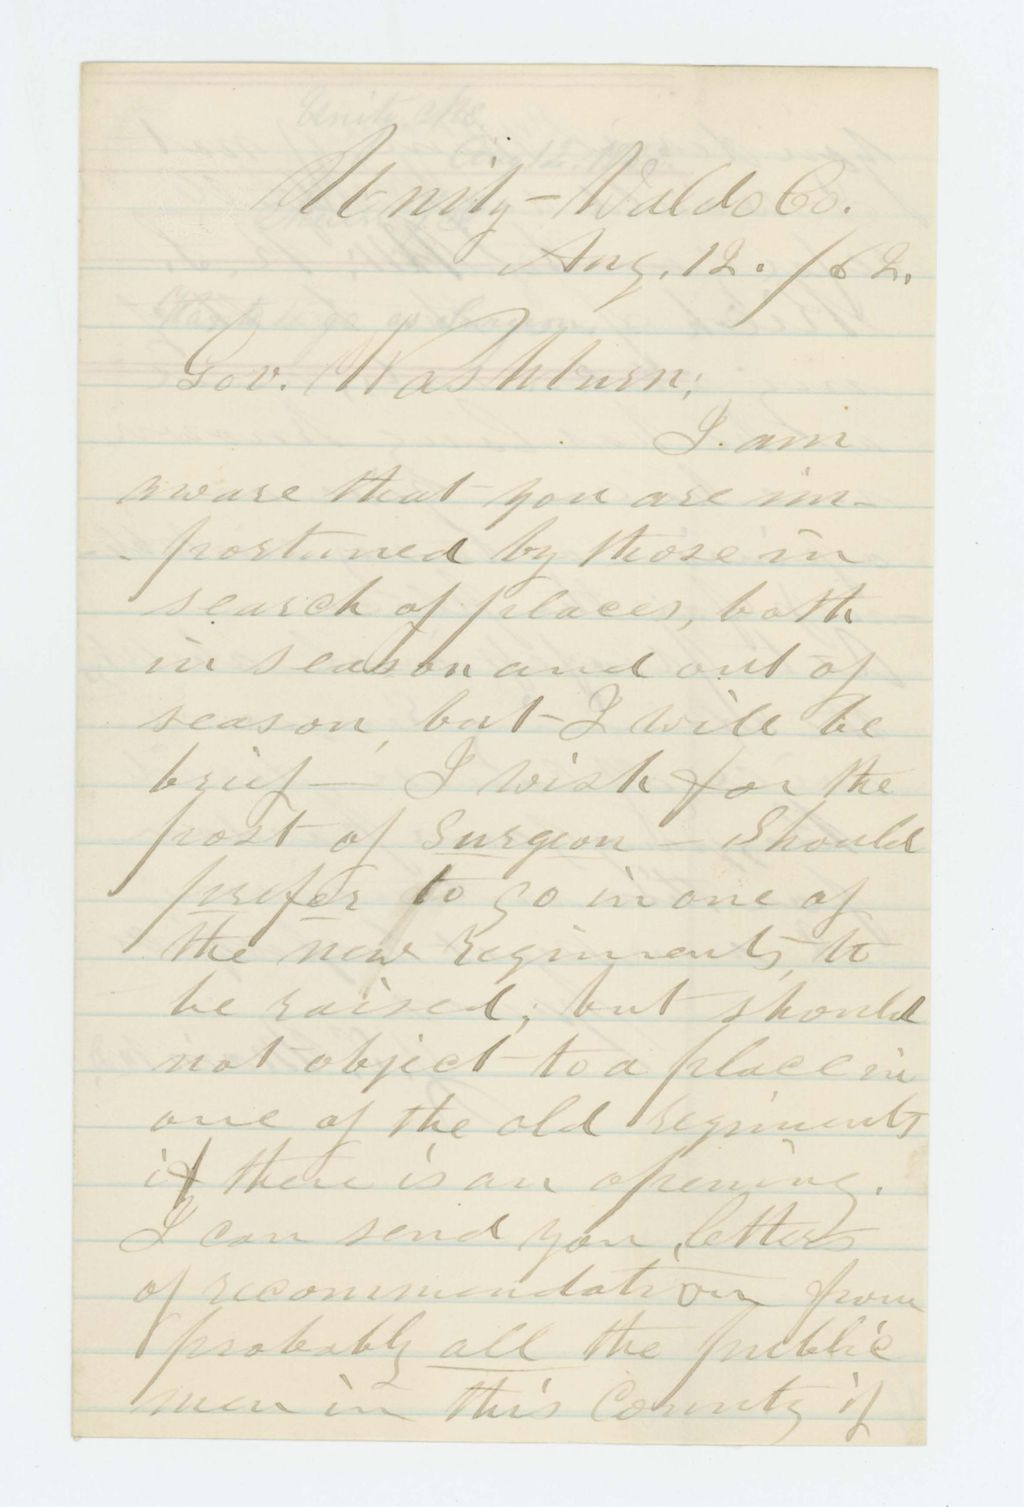 Unity - Waldo Co.
Aug. 12. /62.
Gov. Washburn;
I am
aware that you are im-
-portuned by those in
search of places, both
in season and out of
season, but I will be
brief - I wish for the
post of Surgeon - Should
prefer to go in one of
the new regiments, to
be raised; but should
not object to a place in
one of the old regiments
if there is an opening.
I can send you letters
of recommendation from
probably all the public
men in this County if